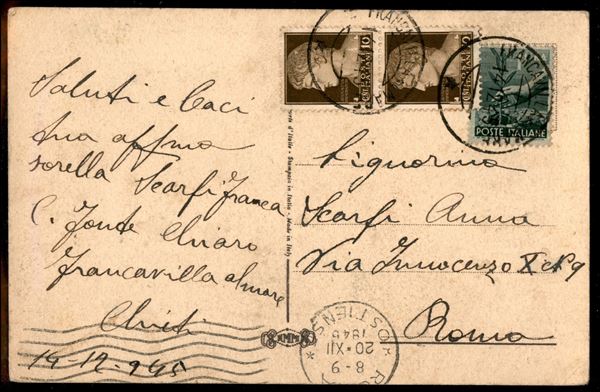 Saluti e baci
tua affma
sorella Scarfi Franca
C. Fonte Chiaro
Francavilla al mare
Chieti
14-12-945
Signorina
Scarfi Anna
Via Innocenzo X N 9
Roma
10
POSTE ITALIANE
POSTE ITALIANE
FRANCA
OSTIENSE
8-9
20·XII
1945
d'Italia - Stampato in Italia - Made in Italy